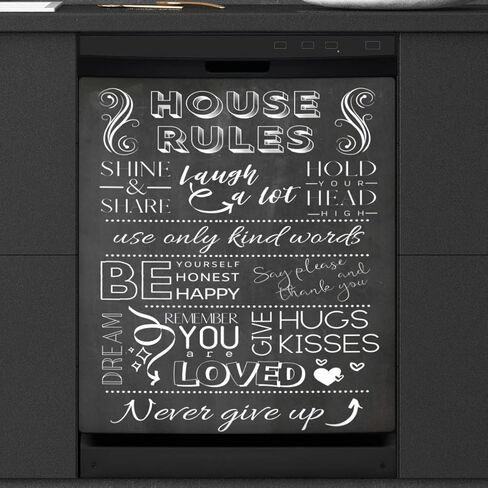 HOUSE
RULES
SHINE
&
SHARE
Laugh
a lot
HOLD
YOUR
HEAD
HIGH
use only kind words
BE
YOURSELF
HONEST
HAPPY
Say please
and
thank you
DREAM
REMEMBER
YOU
are
LOVED
GIVE
HUGS
KISSES
Never give up